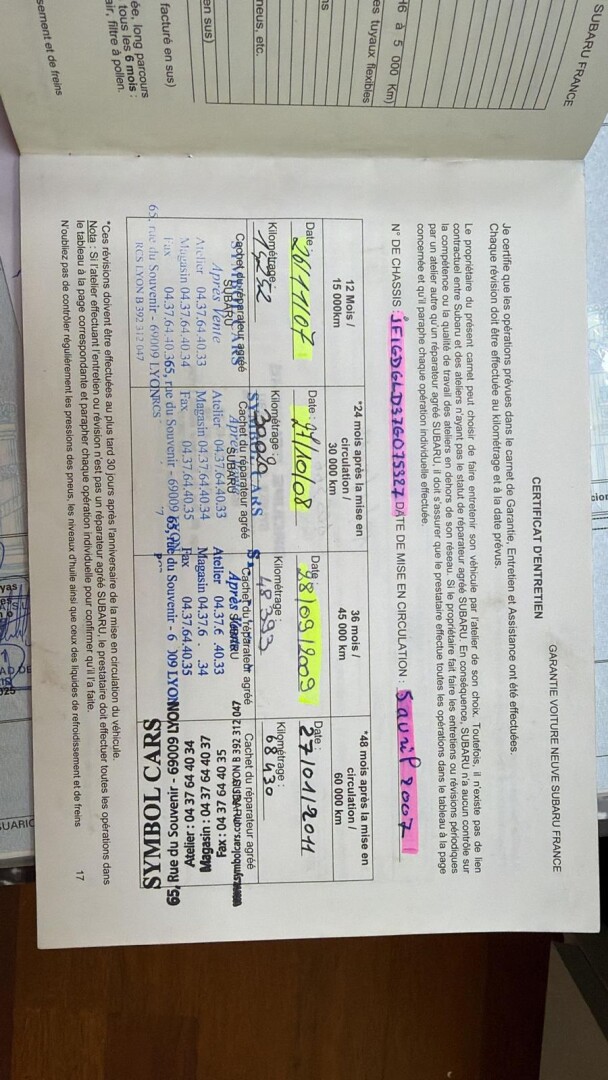 SUBARU FRANCE
H6 à 5 000 Km)
es tuyaux flexibles
ns
neus, etc.
en sus)
facturé en sus)
ée, long parcours
tous les 6 mois :
air, filtre à pollen.
sement et de freins
GARANTIE VOITURE NEUVE SUBARU FRANCE
CERTIFICAT D'ENTRETIEN
Je certifie que les opérations prévues dans le carnet de Garantie, Entretien et Assistance ont été effectuées.
Chaque révision doit être effectuée au kilométrage et à la date prévus.
Le propriétaire du présent carnet peut choisir de faire entretenir son véhicule par l'atelier de son choix. Toutefois, il n'existe pas de lien
contractuel entre Subaru et des ateliers n'ayant pas le statut de réparateur agréé SUBARU. En conséquence, SUBARU n'a aucun contrôle sur
la compétence ou la qualité de travail des ateliers en dehors de son réseau. Si le propriétaire fait faire les entretiens ou révisions périodiques
par un atelier autre qu'un réparateur agréé SUBARU, il doit s'assurer que le prestataire effectue toutes les opérations dans le tableau à la page
concernée et qu'il paraphe chaque opération individuelle effectuée.
N° DE CHASSIS : JF1GDGLD37G075327 DATE DE MISE EN CIRCULATION : 5 avril 2007
12 Mois /
15 000km
*24 mois après la mise en
circulation /
30 000 km
36 mois /
45 000 km
*48 mois après la mise en
circulation /
60 000 km
Date : 26/11/07
Date : 29/10/08
Date : 28/09/2009
Date : 27/01/2011
Kilométrage :
Kilométrage :
Kilométrage : 48393
Kilométrage : 68430
Cachet du réparateur agréé
SUBARU
Après Vente
Atelier 04.37.64.40.33
Magasin 04.37.64.40.34
Fax 04.37.64.40.3
65, rue du Souvenir - 69009 LYON
RCS LYON B 392 312 047
Cachet du réparateur agréé
SUBARU
Atelier 04.37.64.40.33
Magasin 04.37.64.40.34
Fax 04.37.64.40.35
65, rue du Souvenir - 69009
Cachet du réparateur agréé
SUBARU
Atelier 04.37.6 40.33
Magasin 04.37.6 34
Fax 04.37.64.40.35
Cachet du réparateur agréé
Fax : 04 37 64 40 35
Magasin : 04 37 64 40 37
Atelier : 04 37 64 40 34
65, Rue du Souvenir - 69009 LYON
SYMBOL CARS
*Ces révisions doivent être effectuées au plus tard 30 jours après l'anniversaire de la mise en circulation du véhicule.
Nota : Si l'atelier effectuant l'entretien ou révision n'est pas un réparateur agréé SUBARU, le prestataire doit effectuer toutes les opérations dans
le tableau à la page correspondante et parapher chaque opération individuelle pour confirmer qu'il l'a faite.
N'oubliez pas de contrôler régulièrement les pressions des pneus, les niveaux d'huile ainsi que ceux des liquides de refroidissement et de freins
17